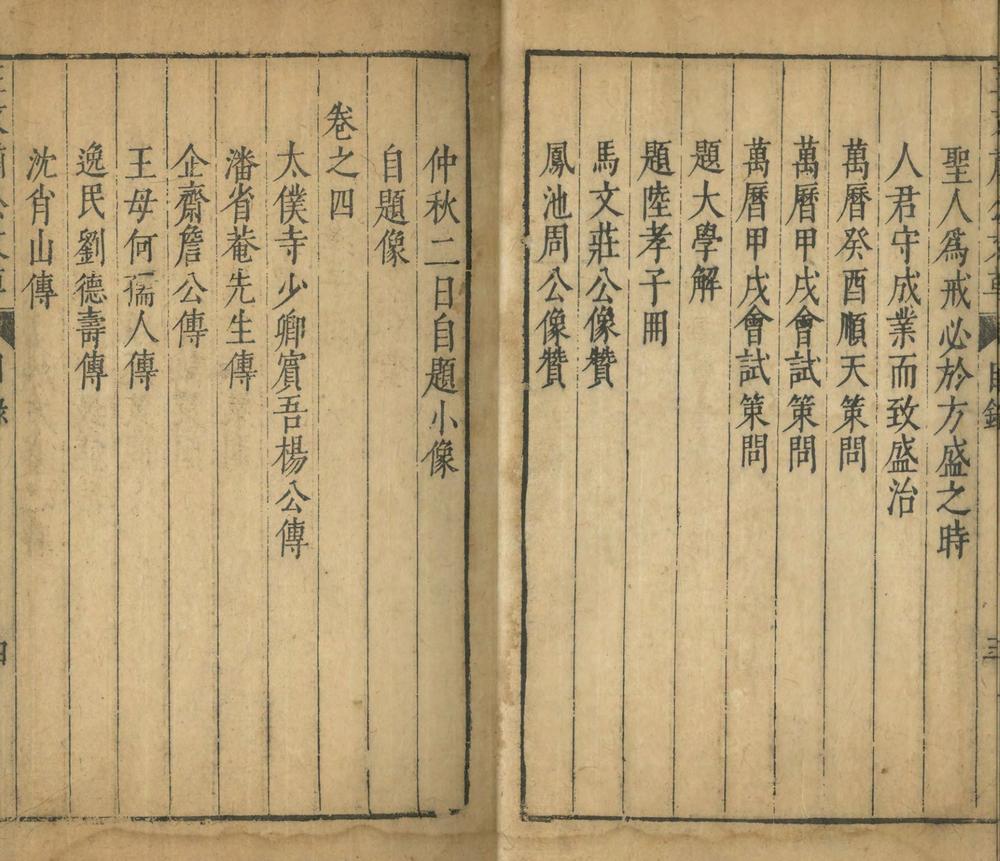 聖人爲戒必於方盛之時
人君守成業而致盛治
萬曆癸酉順天策問
萬曆甲戌會試策問
萬曆甲戌會試策問
題大學解
題陸孝子冊
馬文莊公像贊
鳳池周公像贊
仲秋二日自題小像
自題像
卷之四
太僕寺少卿賓吾楊公傳
潘省菴先生傳
企齋詹公傳
王母何孺人傳
逸民劉德壽傳
沈肖山傳